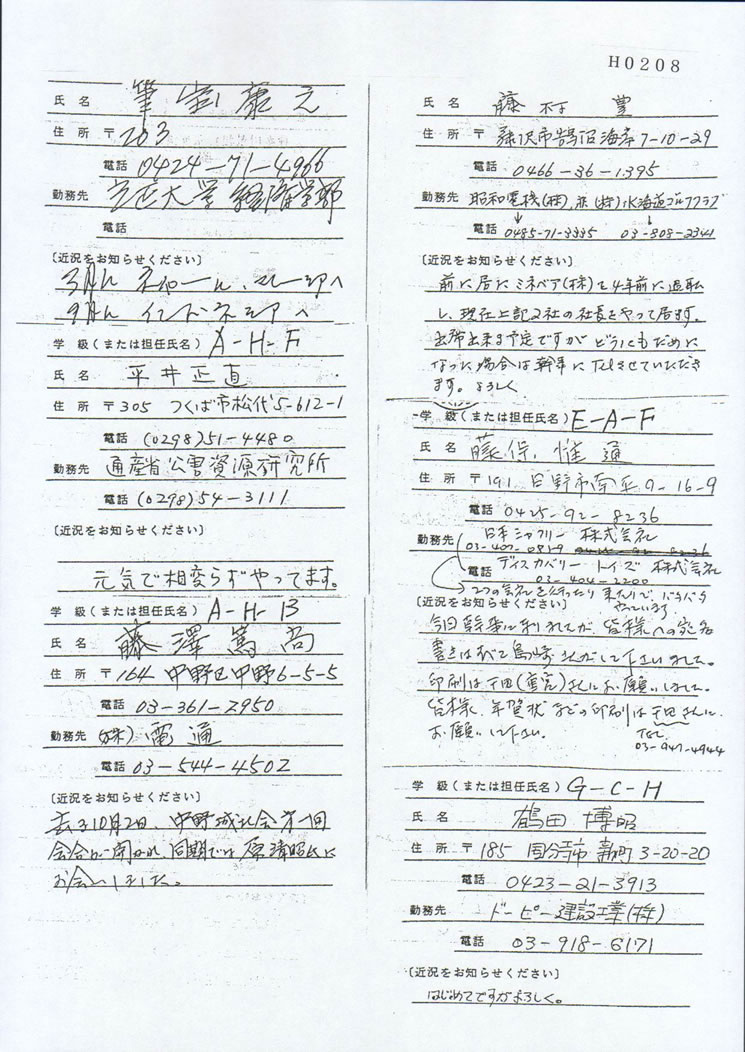 H0208
氏名 筆宝康之
住所 〒203
電話 0424-71-4966
勤務先 立正大学 経済学部
電話
〔近況をお知らせください〕
3月に ネパール、マレーシアへ
9月に インドネシアへ
学級（または担任氏名）A-H-F
氏名 平井正直
住所 〒305 つくば市松代5-612-1
電話 (0298)51-4480
勤務先 通産省公害資源研究所
電話 (0298)54-3111
〔近況をお知らせください〕
元気で相変らずやってます。
学級（または担任氏名）A-H-B
氏名 藤澤篤尚
住所 〒164 中野区中野6-5-5
電話 03-361-2950
勤務先 (株)電通
電話 03-544-4502
〔近況をお知らせください〕
去る10月2日、中野城北会第一回
会合が開かれ、同期では原清昭氏に
お会いしました。
氏名 藤村 豊
住所 〒 藤沢市鵠沼海岸7-10-29
電話 0466-36-1395
勤務先 昭和電機(株)、(株)水海道ゴルフクラブ
電話 0485-71-3335 03-808-2341
〔近況をお知らせください〕
前に居たミネベア(株)を4年前に退職
し、現在上記2社の社長をやって居ます。
出席出来る予定ですがどうにもだめに
なった場合は幹事にTelさせていただき
ます。よろしく
学級（または担任氏名）E-A-F
氏名 藤保 惟通
住所 〒191 日野市南平9-16-9
電話 0425-92-8236
勤務先 日本シャフリー 株式会社
03-407-0819
電話 ディスカバリートイズ 株式会社
03-404-2200
2つの会社を行ったり来たりで、バタバタ
やっています。
〔近況をお知らせください〕
今回幹事に制れたが、皆様への宛名
書きはすべて島崎氏がして下さいました。
印刷は千田(重宏)さんにお願いしました。
皆様、年賀状などの印刷は千田さんに、
お願いして下さい。
TEL
03-947-4944
学級（または担任氏名）G-C-H
氏名 鶴田博昭
住所 〒185 国分寺市新町3-20-20
電話 0423-21-3913
勤務先 ドーピー建設工業(株)
電話 03-918-6171
〔近況をお知らせください〕
はじめてですがよろしく。